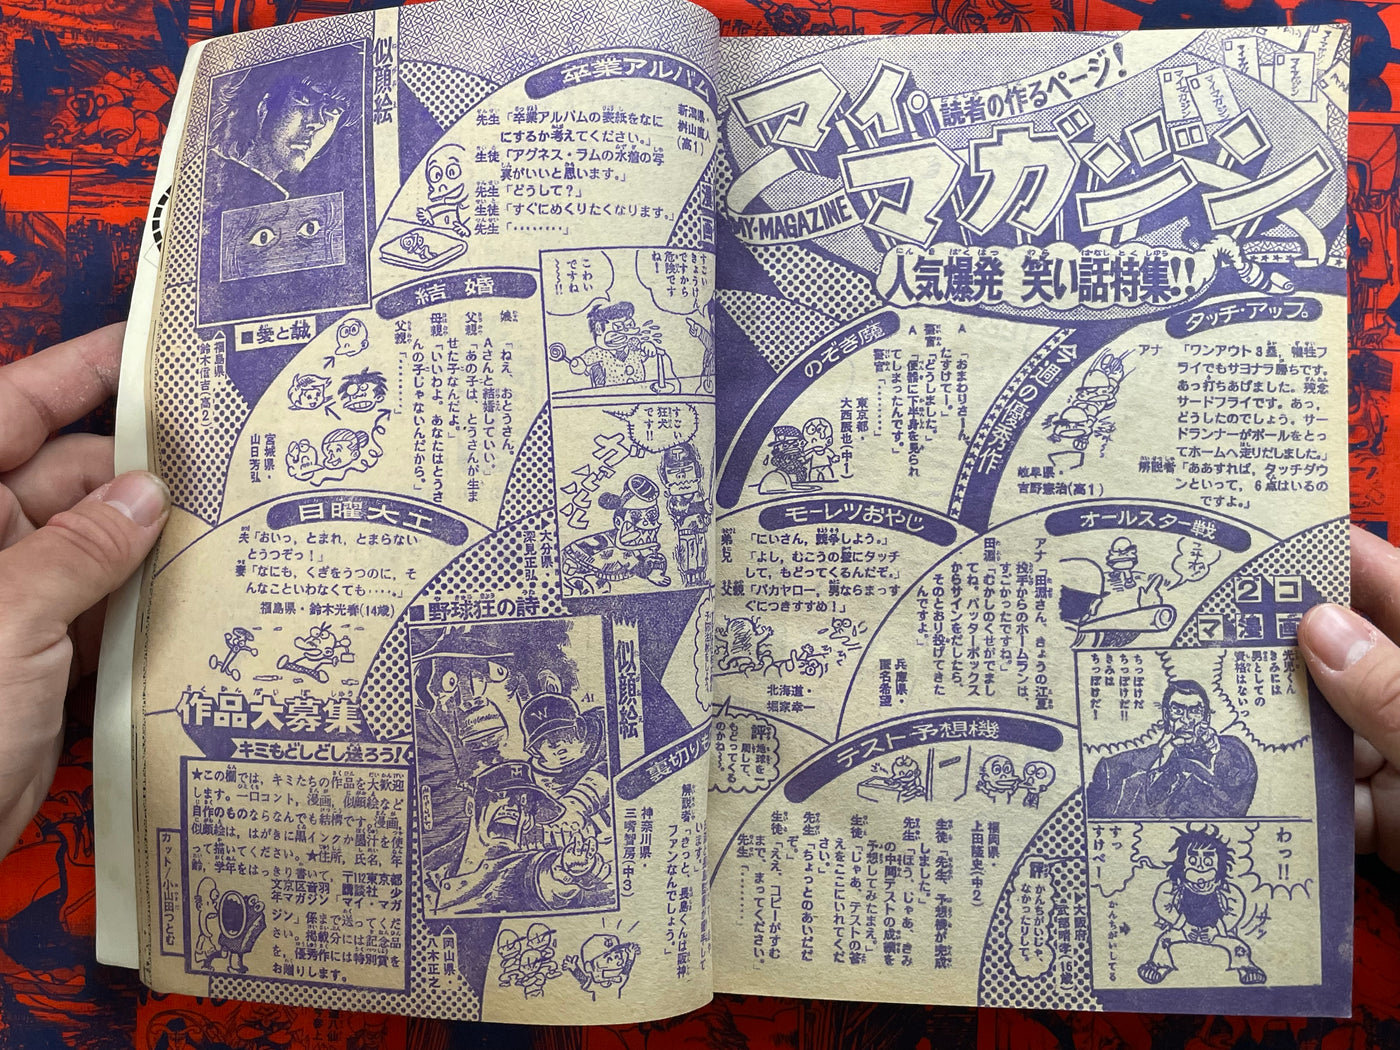 読者の作るページ!
マイ・マガジン
MY・MAGAZINE
人気爆発 笑い話特集!!
タッチ・アップ。
アナ「ワンアウト3塁,犠牲フ
ライでもサヨナラ勝ちです。
あっ打ちあげました。残念
サードフライです。あっ,
どうしたのでしょう。サー
ドランナーがボールをとっ
てホームへ走りだしました。」
解説者「ああすれば,タッチダウ
ンといって,6点はいるの
ですよ。」
岐阜県・
吉野憲治(高1)
今週の優秀作
のぞき魔
A「おまわりさーん,
たすけてー。」
警官「どうしました。」
A「便器に下半身を見られ
てしまったんです。」
警官「………」
東京都・
大西辰也(中1)
オールスター戦
アナ「田淵さん,きょうの江夏
投手からのホームランは,
すごかったですね。」
田淵「むかしのくせがでまし
てね。バッターボックス
からサインをだしたら,
そのとおり投げてきた
んですよ。」
兵庫県・
匿名希望
モーレツおやじ
弟「にいさん,競争しよう。」
兄「よし,むこうの壁にタッチ
して,もどってくるんだぞ。」
父親「バカヤロー,男ならまっす
ぐにつきすすめ!」
北海道・
堀家幸一
評
地球を
一周して,
もどってくる
のかね〜。
2コマ漫画
光児くん
きみには
男としての
資格はないっ
ちっぽけだ
ちっぽけだ!!
きみは
ちっぽけだー!
わっ!!
すけべー
かんちがいしてる
▶大阪府・
武部博孝(16歳)
評
かんちがいじゃ,
なかったりして。
テスト予想機
生徒「先生,予想機が完成
しました。」
先生「ほう,じゃあ,きみ
の中間テストの成績を
予想してみたまえ。」
生徒「じゃあ,テストの答
えをここにいれてくだ
さい。」
先生「ちょっとのあいだだ
ぞ。」
生徒「ええ,コピーがすむ
まで,まってください。」
先生「………」
福岡県・
上田隆史(中2)
卒業アルバム
先生「卒業アルバムの表紙をなに
にするか考えてください。」
生徒「アグネス・ラムの水着の写
真がいいと思います。」
先生「どうして?」
生徒「すぐにめくりたくなります。」
先生「………」
新潟県・
桝山直人
(高1)
似顔絵
■愛と誠
▲福島県・
鈴木信吉(高2)
漫画
すごい
きょうけん
ですから
危険です
ね!
こわい
ですね
〜!!
すごい
狂犬
です!!
ガオルル
▶大分県・
深見正弘
結婚
娘「ねえ,おとうさん,
Aさんと結婚していい。」
父親「あの子は,とうさんが生ま
せた子なんだよ。」
母親「いいわよ。あなたはとうさ
んの子じゃないんだから。」
父親「………」
宮城県・
山日芳弘
日曜大工
夫「おいっ,とまれ,とまらない
とうつぞっ!」
妻「なにも,くぎをうつのに,そ
んなこといわなくても……。」
福島県・鈴木光春(14歳)
■野球狂の詩
似顔絵
▲岡山県・
八木正之
裏切りも
解説者「きっと,長島くんは阪神
ファンなんでしょう。」
神奈川県・
三嘴智房(中3)
作品大募集
キミもどしどし送ろう!
★この欄では,キミたちの作品を大歓迎
します。一口コント,漫画,似顔絵など
自作のものならなんでも結構です。漫画,
似顔絵は,はがきに黒インクか墨汁を使
って描いてください。★住所,氏名,年
齢,学年をはっきり書いて,〒112東京都
文京区音羽 講談社 少
年マガジン マイ・マガ
ジン」係まで送ってくだ
さい。掲載分には記念品
を,優秀作には特別賞を
お贈りします。
カット/小山田つとむ